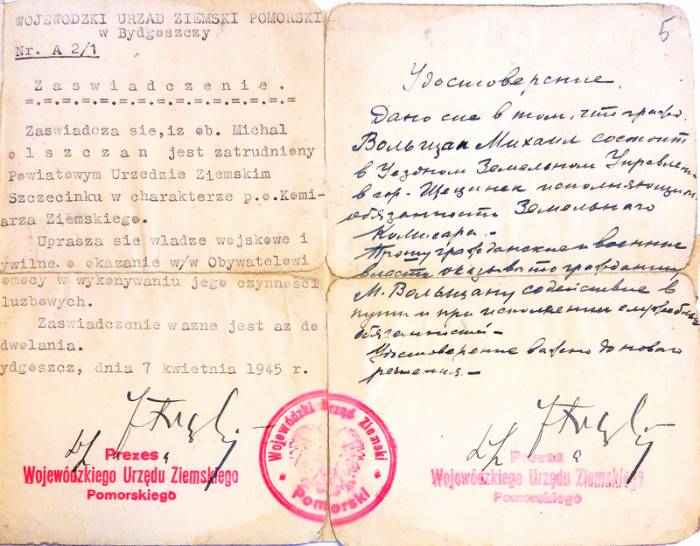 WOJEWODZKI URZAD ZIEMSKI POMORSKI
w Bydgoszczy
Nr. A 2/1
Zaswiadczenie.
=.=.=.=.=.=.=.=.=.=.=.=.=.=
Zaswiadcza sie,iz ob. Michal
olszczan jest zatrudniony
Powiatowym Urzedzie Ziemskim
Szczecinku w charakterze p.o.Komi-
arza Ziemskiego.
Uprasza sie wladze wojskowe i
ywilne o okazanie w/w Obywatelowi
omocy w wykonywaniu jego czynnosci
luzbowych.
Zaswiadczenie wazne jest az do
dwolania.
ydgoszcz, dnia 7 kwietnia 1945 r.
Prezes
Wojewódzkiego Urzędu Ziemskiego
Pomorskiego
Wojewódzki Urząd Ziemski
Pomorski
5
Удостоверение.
Дано сие в том, что граж.
Вольщан Михаил состоит
в Уездном Земельном Управлен
в гор. Щецинек исполняющим
обязанности Земельного
Комисара.-
Прошу гражданские и военные
власти оказывать гражданину
М. Вольщану содействие в
пути и при исполнении служебных
обязанностей-
Удостоверение важно до нового
решения.-
Prezes
Wojewódzkiego Urzędu Ziemskiego
Pomorskiego